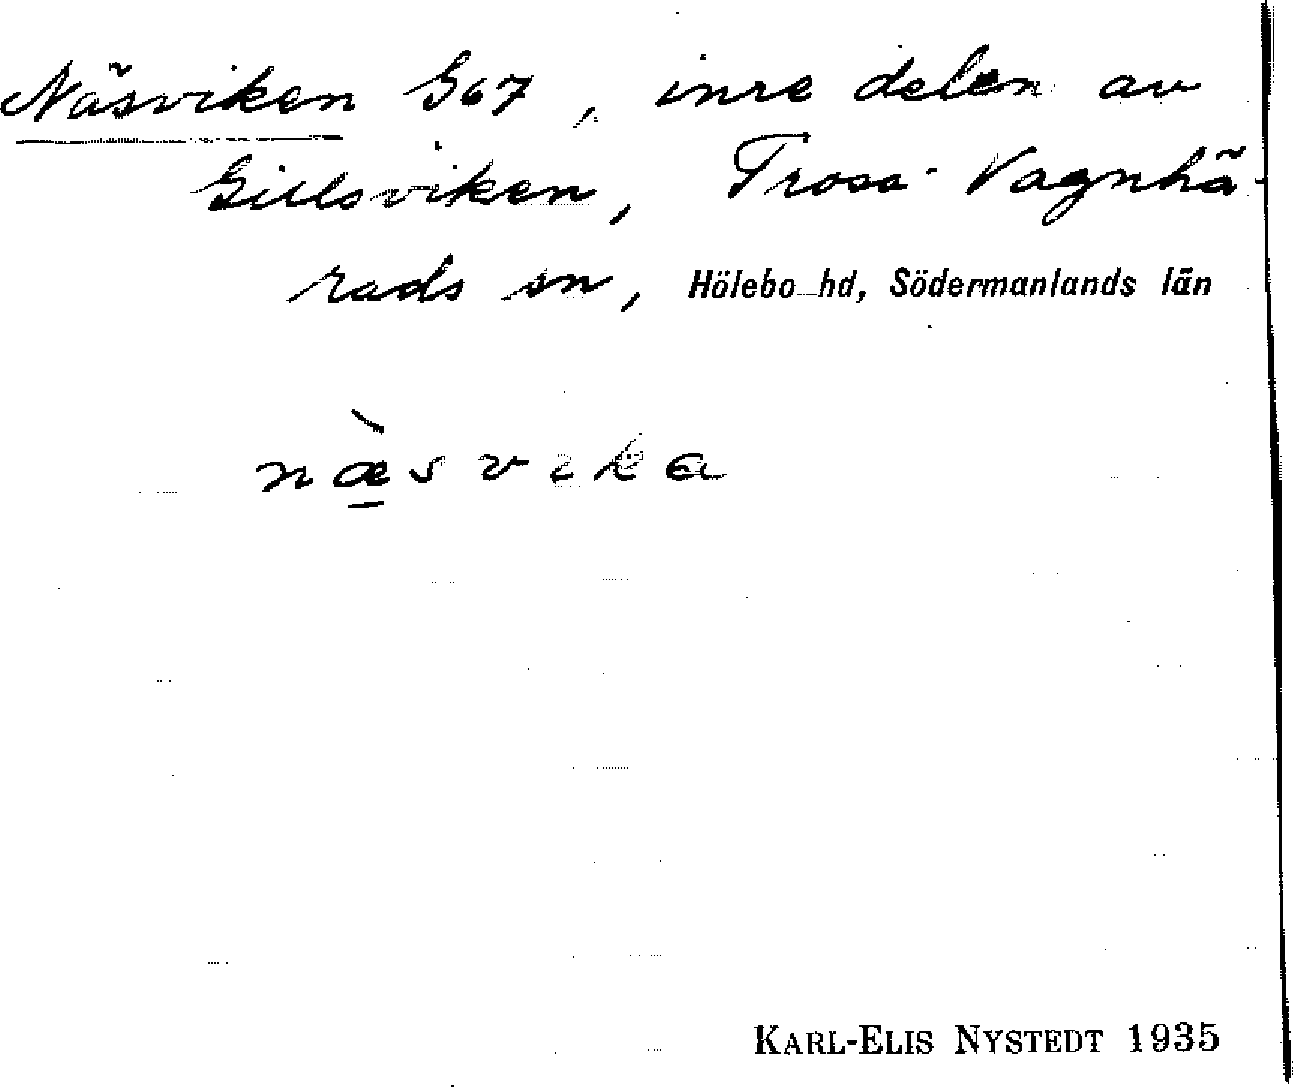 Näsviken G67, inre delen av
Gillsviken, Trosa-Vagnhä-
rads sn, Hölebo hd, Södermanlands län
næ̀svika
KARL-ELIS NYSTEDT 1935